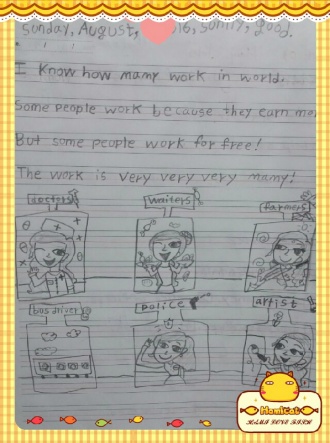 sonday, August, sunny, good.
I know how many work in world.
Some people work because they earn
But some people work for free!
The work is very very very many!
doctors waiters farmers
bus driver police artist
Hamicat
HAMI LOVE FISH